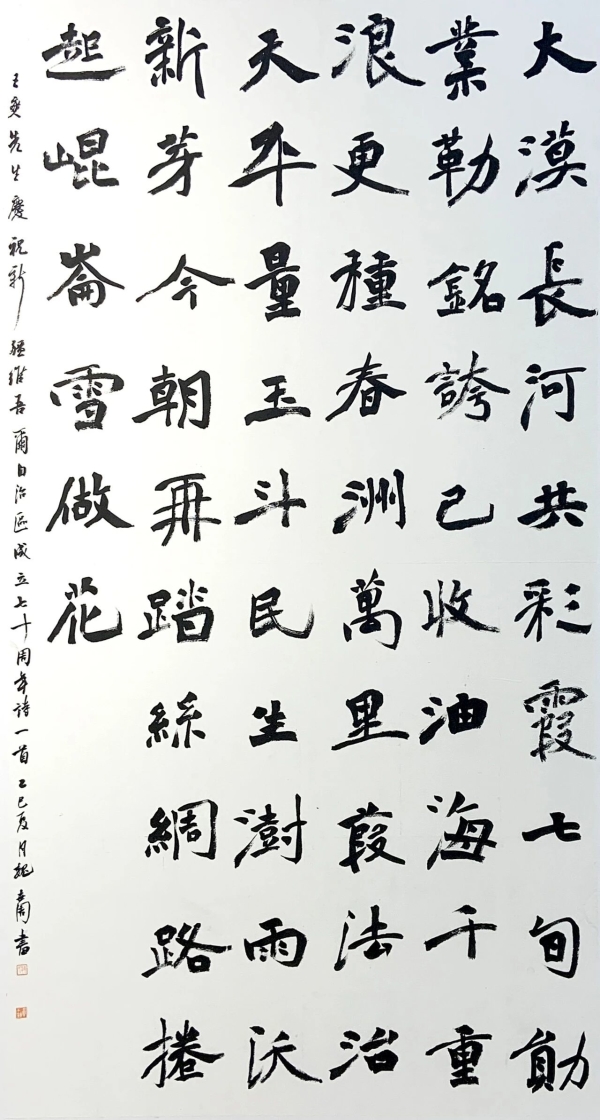 大漠長河共彩霞七旬勛
業勒銘誇已收油海千重
浪更種春洲萬里葭法治
天平量玉斗民生澍雨沃
新芽今朝再踏絲綢路捲
起崐崙雪做花
王爽先生慶祝新疆維吾爾自治區成立七十周年詩一首乙巳夏月 書